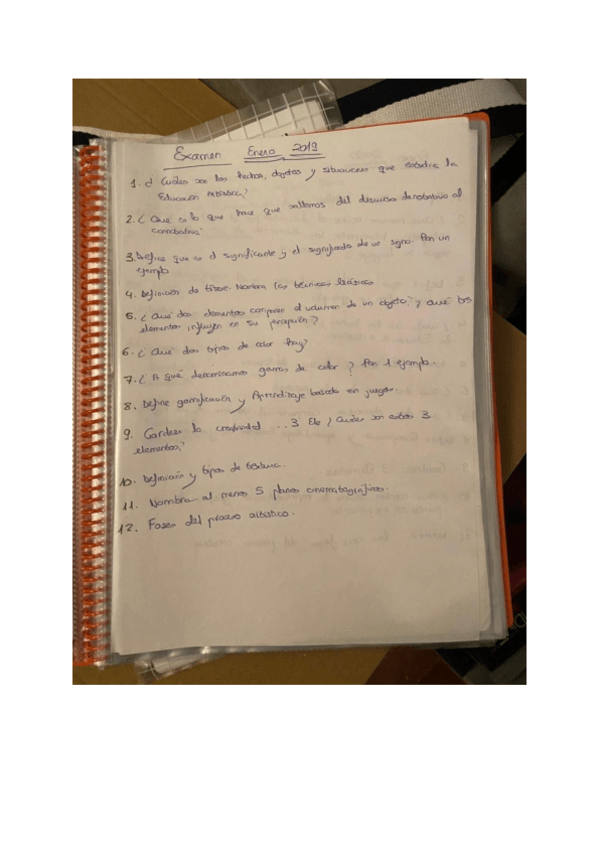 Examen Enero 2019
1. ¿ Cuáles son los hechos, objetos y situaciones que estudia la
Educación Artística?
2. ¿ Qué es lo que hace que saltemos del discurso denotativo al
connotativo?
3. Define que es el significante y el significado de un signo. Pon un
ejemplo
4. Definición de títere. Nombra las técnicas básicas
5. ¿ Qué dos elementos componen el volumen de un objeto? y qué dos
elementos influyen en su percepción?
6. ¿ Qué dos tipos de color hay?
7. ¿ A qué denominamos gamas de color? Pon 1 ejemplo.
8. Define gamificación y Aprendizaje basado en juegos.
9. Gardner la creatividad ... 3 Ele ¿ Cuáles son estos 3
elementos?
10. Definición y tipos de textura.
11. Nombra al menos 5 planos cinematográficos.
12. Fases del proceso artístico.